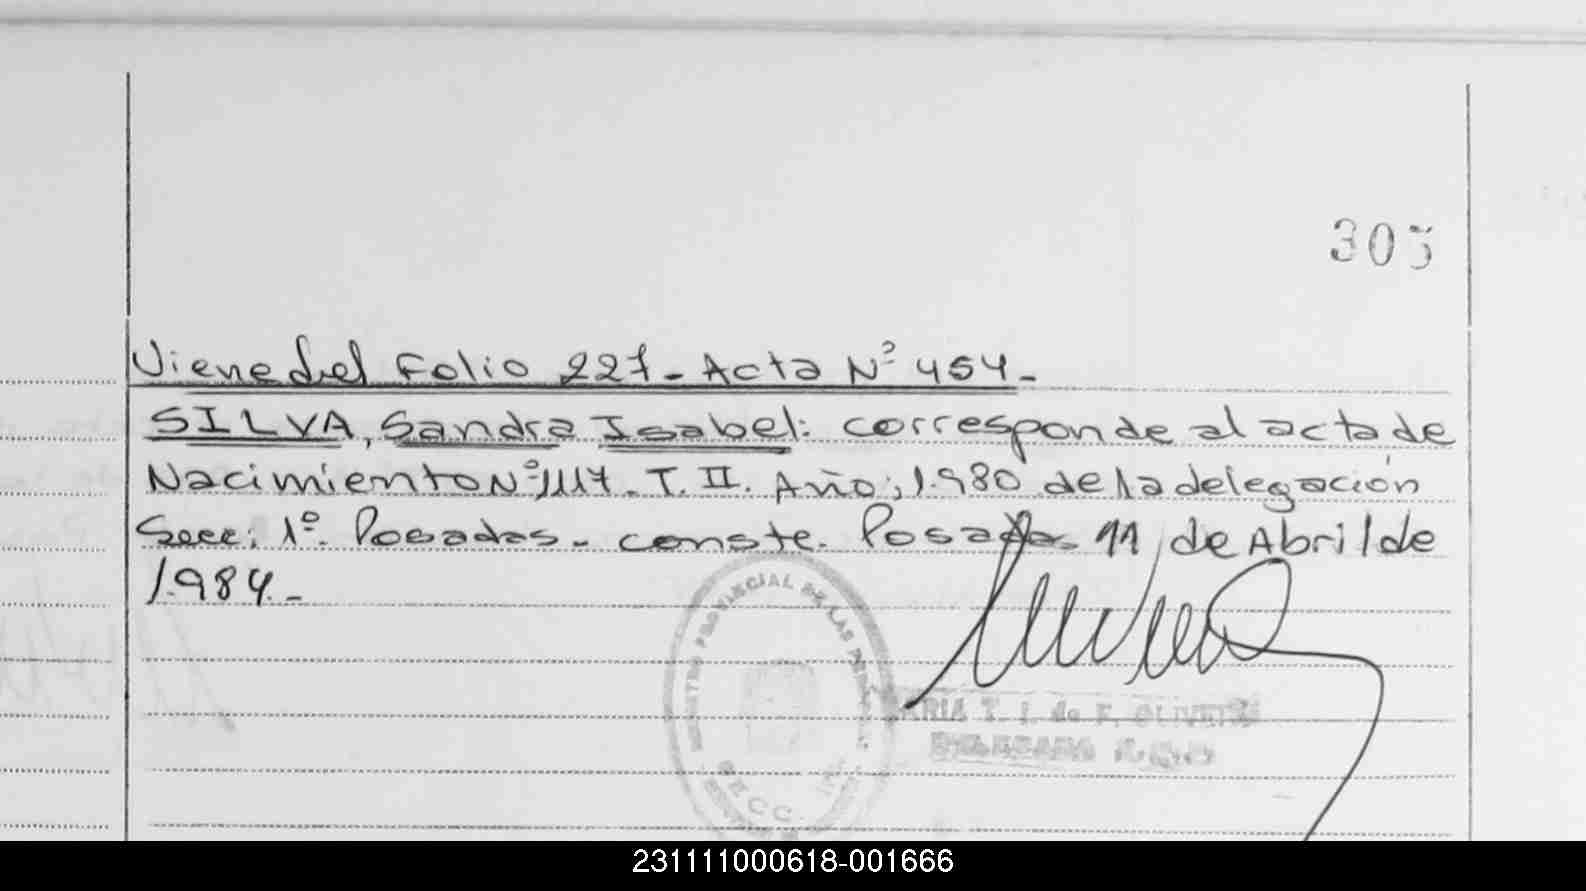 305
Viene del Folio 227 - Acta Nº 454 -
SILVA, Sandra Isabel: corresponde al acta de
Nacimiento Nº 1117. T. II. Año; 1.980 de la delegación
Secc: 1º. Posadas - conste. Posadas 11 de Abril de
1.984. -
REGISTRO PROVINCIAL DE LAS PERSONAS
SECC.
MARIA T. I. de F. OLIVEIRA
DELEGADA
231111000618-001666